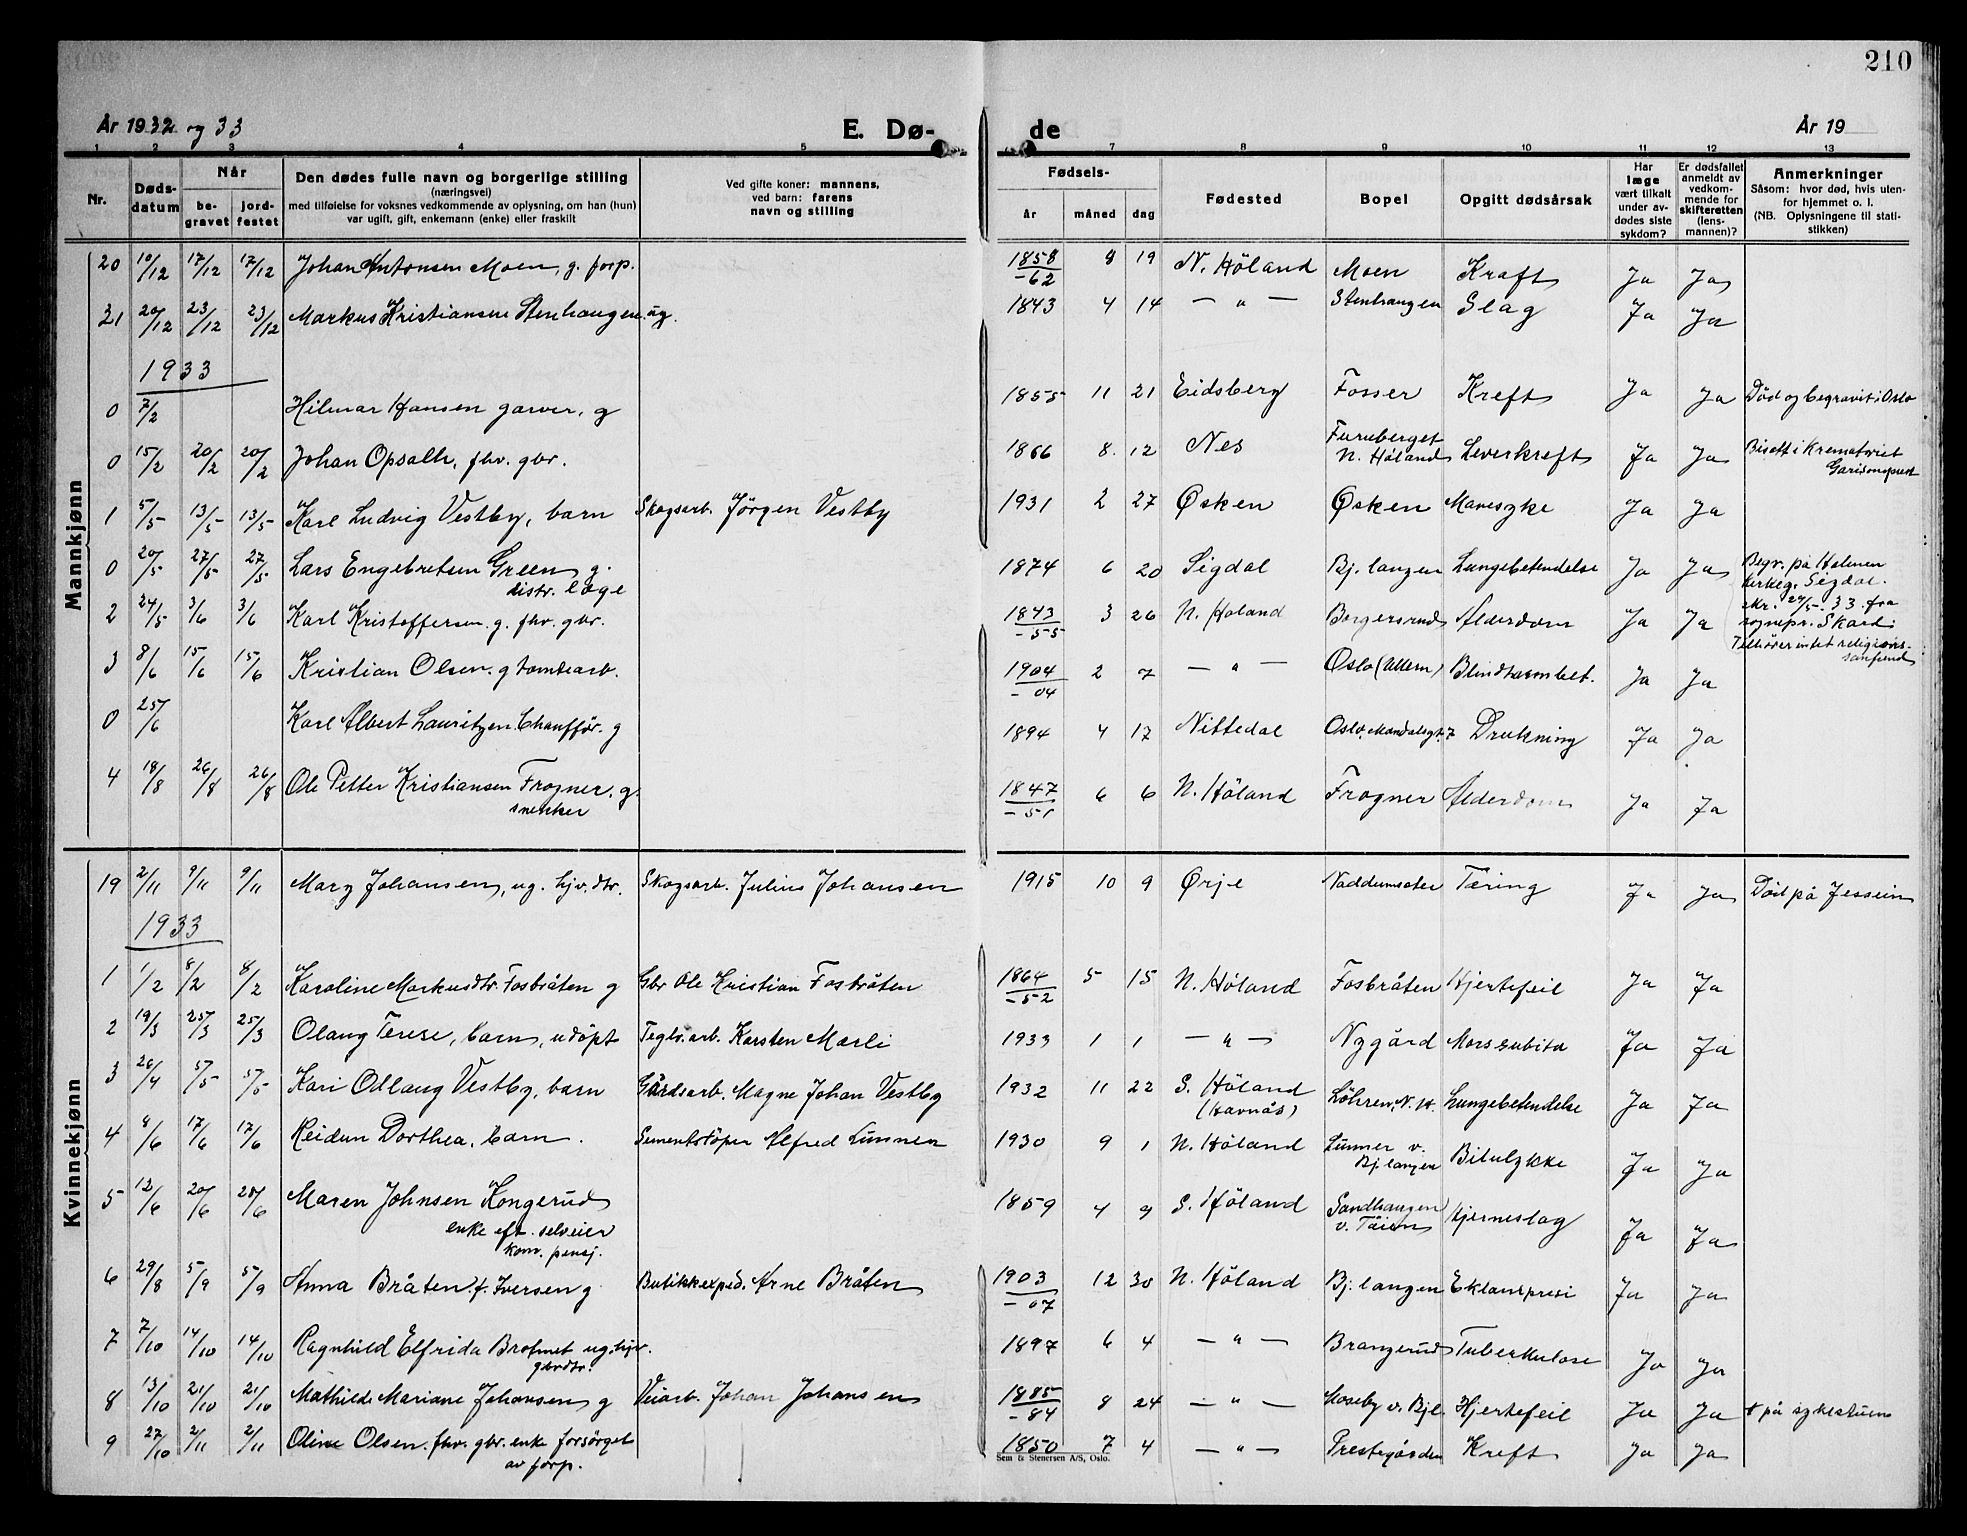 210
År 1932 og 33
E. Dø-
de
År 19
1 2 3 4 5 7 8 9 10 11 12 13
Nr.
Døds-
datum
Når
be-
gravet
jord-
festet
Den dødes fulle navn og borgerlige stilling
(næringsvei)
med tilføielse for voksnes vedkommende av oplysning, om han (hun)
var ugift, gift, enkemann (enke) eller fraskilt
Ved gifte koner: mannens,
ved barn: farens
navn og stilling
Fødsels-
år måned dag
Fødested
Bopel
Opgitt dødsårsak
Har
læge
vært tilkalt
under av-
dødes siste
sykdom?
Er dødsfallet
anmeldt av
vedkom-
mende for
skifteretten
(lens-
mannen)?
Anmerkninger
Såsom: hvor død, hvis uten-
for hjemmet o. l.
(NB. Oplysningene til stati-
stikken)
Mannkjønn
20 10/12 17/12 17/12 Johan Antonsen Moen, g. forp. 1858 8 19 N. Höland Moen Kraft Ja Ja
-62
21 20/12 23/12 23/12 Markus Kristiansen Stenhaugen. ug. 1843 4 14 — " — Stenhaugen Slag Ja Ja
1933
0 7/2 Hilmar Hansen garver, g 1855 11 21 Eidsberg Fosser Kreft Ja Ja Död og begravet i Oslo
0 15/2 20/2 20/2 Johan Opsalh, fhv. gbr. 1866 8. 12 Nes Furuberget Leverkreft Ja Ja Bisatt i Krematoriet
N. Höland
1 5/5 13/5 13/5 Karl Ludvig Vestby, barn Skogsarb. Jörgen Vestby 1931 2 27 Øsken Øsken Mavesyke Ja Ja
0 20/5 27/5 27/5 Lars Engebretsen Green g. 1874 6 20 Sigdal Bj. langen Lungebetendelse Ja Ja Begr. på Holmen
distr. læge
kirkeg. Sigdal.
2 24/5 3/6 3/6 Karl Kristoffersen. g. fhv. gbr. 1843 3 26 N. Høland Borgersrud Alderdom Ja Ja
-55
skr. 24/5. 33. fra
sognepr. Skard:
3 8/6 15/6 15/6 Kristian Olsen. g tomtearb. 1904 2 7 — " — Oslo (Ullern) Blindtarmbet. Ja Ja Tilhører intet religiøs-
samfund
- 04
0 25/6 Karl Albert Lauritzen. Chauffør. g 1894 4 17 Nittedal Oslo, Mandalsgt. 7 Drukning Ja Ja
4 18/8 26/8 26/8 Ole Petter Kristiansen Frogner. g. 1847 6 6 N. Höland Frogner Alderdom Ja Ja
snekker
- 51
Kvinnekjønn
19 2/11 9/11 9/11 Mary Johansen, ug. hjv. dtr. Skogsarb. Julius Johansen 1915 10 9 Ørje Naddumseter Tæring Ja Ja Död på Jessein
1933
1 1/2 8/2 8/2 Karoline Markusdtr. Fosbråten g Gbr Ole Kristian Fosbråten 1864 5 15 N. Höland Fosbråten Hjertefeil Ja Ja
-52
2 19/3 25/3 25/3 Olaug Terese, barn, udöpt Teglv. arb. Karsten Mærli 1933 1 1 — " — Nygård Mors subita Ja Ja
3 26/4 5/5 5/5 Kari Odlaug Vestby, barn Gårdsarb. Magne Johan Vestby 1932 11 22 S. Höland Löhren, N. H. Lungebetendelse Ja Ja
(Havnås)
4 8/6 17/6 17/6 Reidun Dorthea, barn. Sementstöper Alfred Lunner 1930 9 1 N. Höland Lunner v. Bilulykke Ja Ja
Bj. langen
5 12/6 20/6 20/6 Maren Johnsen Kongerud 1859 4 9 S. Höland Sandhaugen Hjerneslag Ja Ja
enke eft. selveier
v. Töien
kom. pensj.
6 29/8 5/9 5/9 Anna Bråten. f. Iversen g Butikkexped. Arne Bråten 1903 12 30 N. Höland Bj. langen Eklampsi Ja Ja
- 07
7 7/10 14/10 14/10 Ragnhild Elfrida ug. hjv. 1897 6 4 — " — Brangerud Tuberkulose Ja Ja
gbrdtr.
8 13/10 21/10 21/10 Mathilde Mariane Johansen g Veiarb. Johan Johansen 1885 8 24 — " — Moseby v. Bjl. Hjertefeil Ja Ja † på sykestuen
- 84
9 27/10 2/11 2/11 Oline Olsen. fhv. gbr. enke forsörget 1850 7 4 — " — Prestegården Kreft Ja Ja
av forp.
Sem & Stenersen A/S, Oslo.